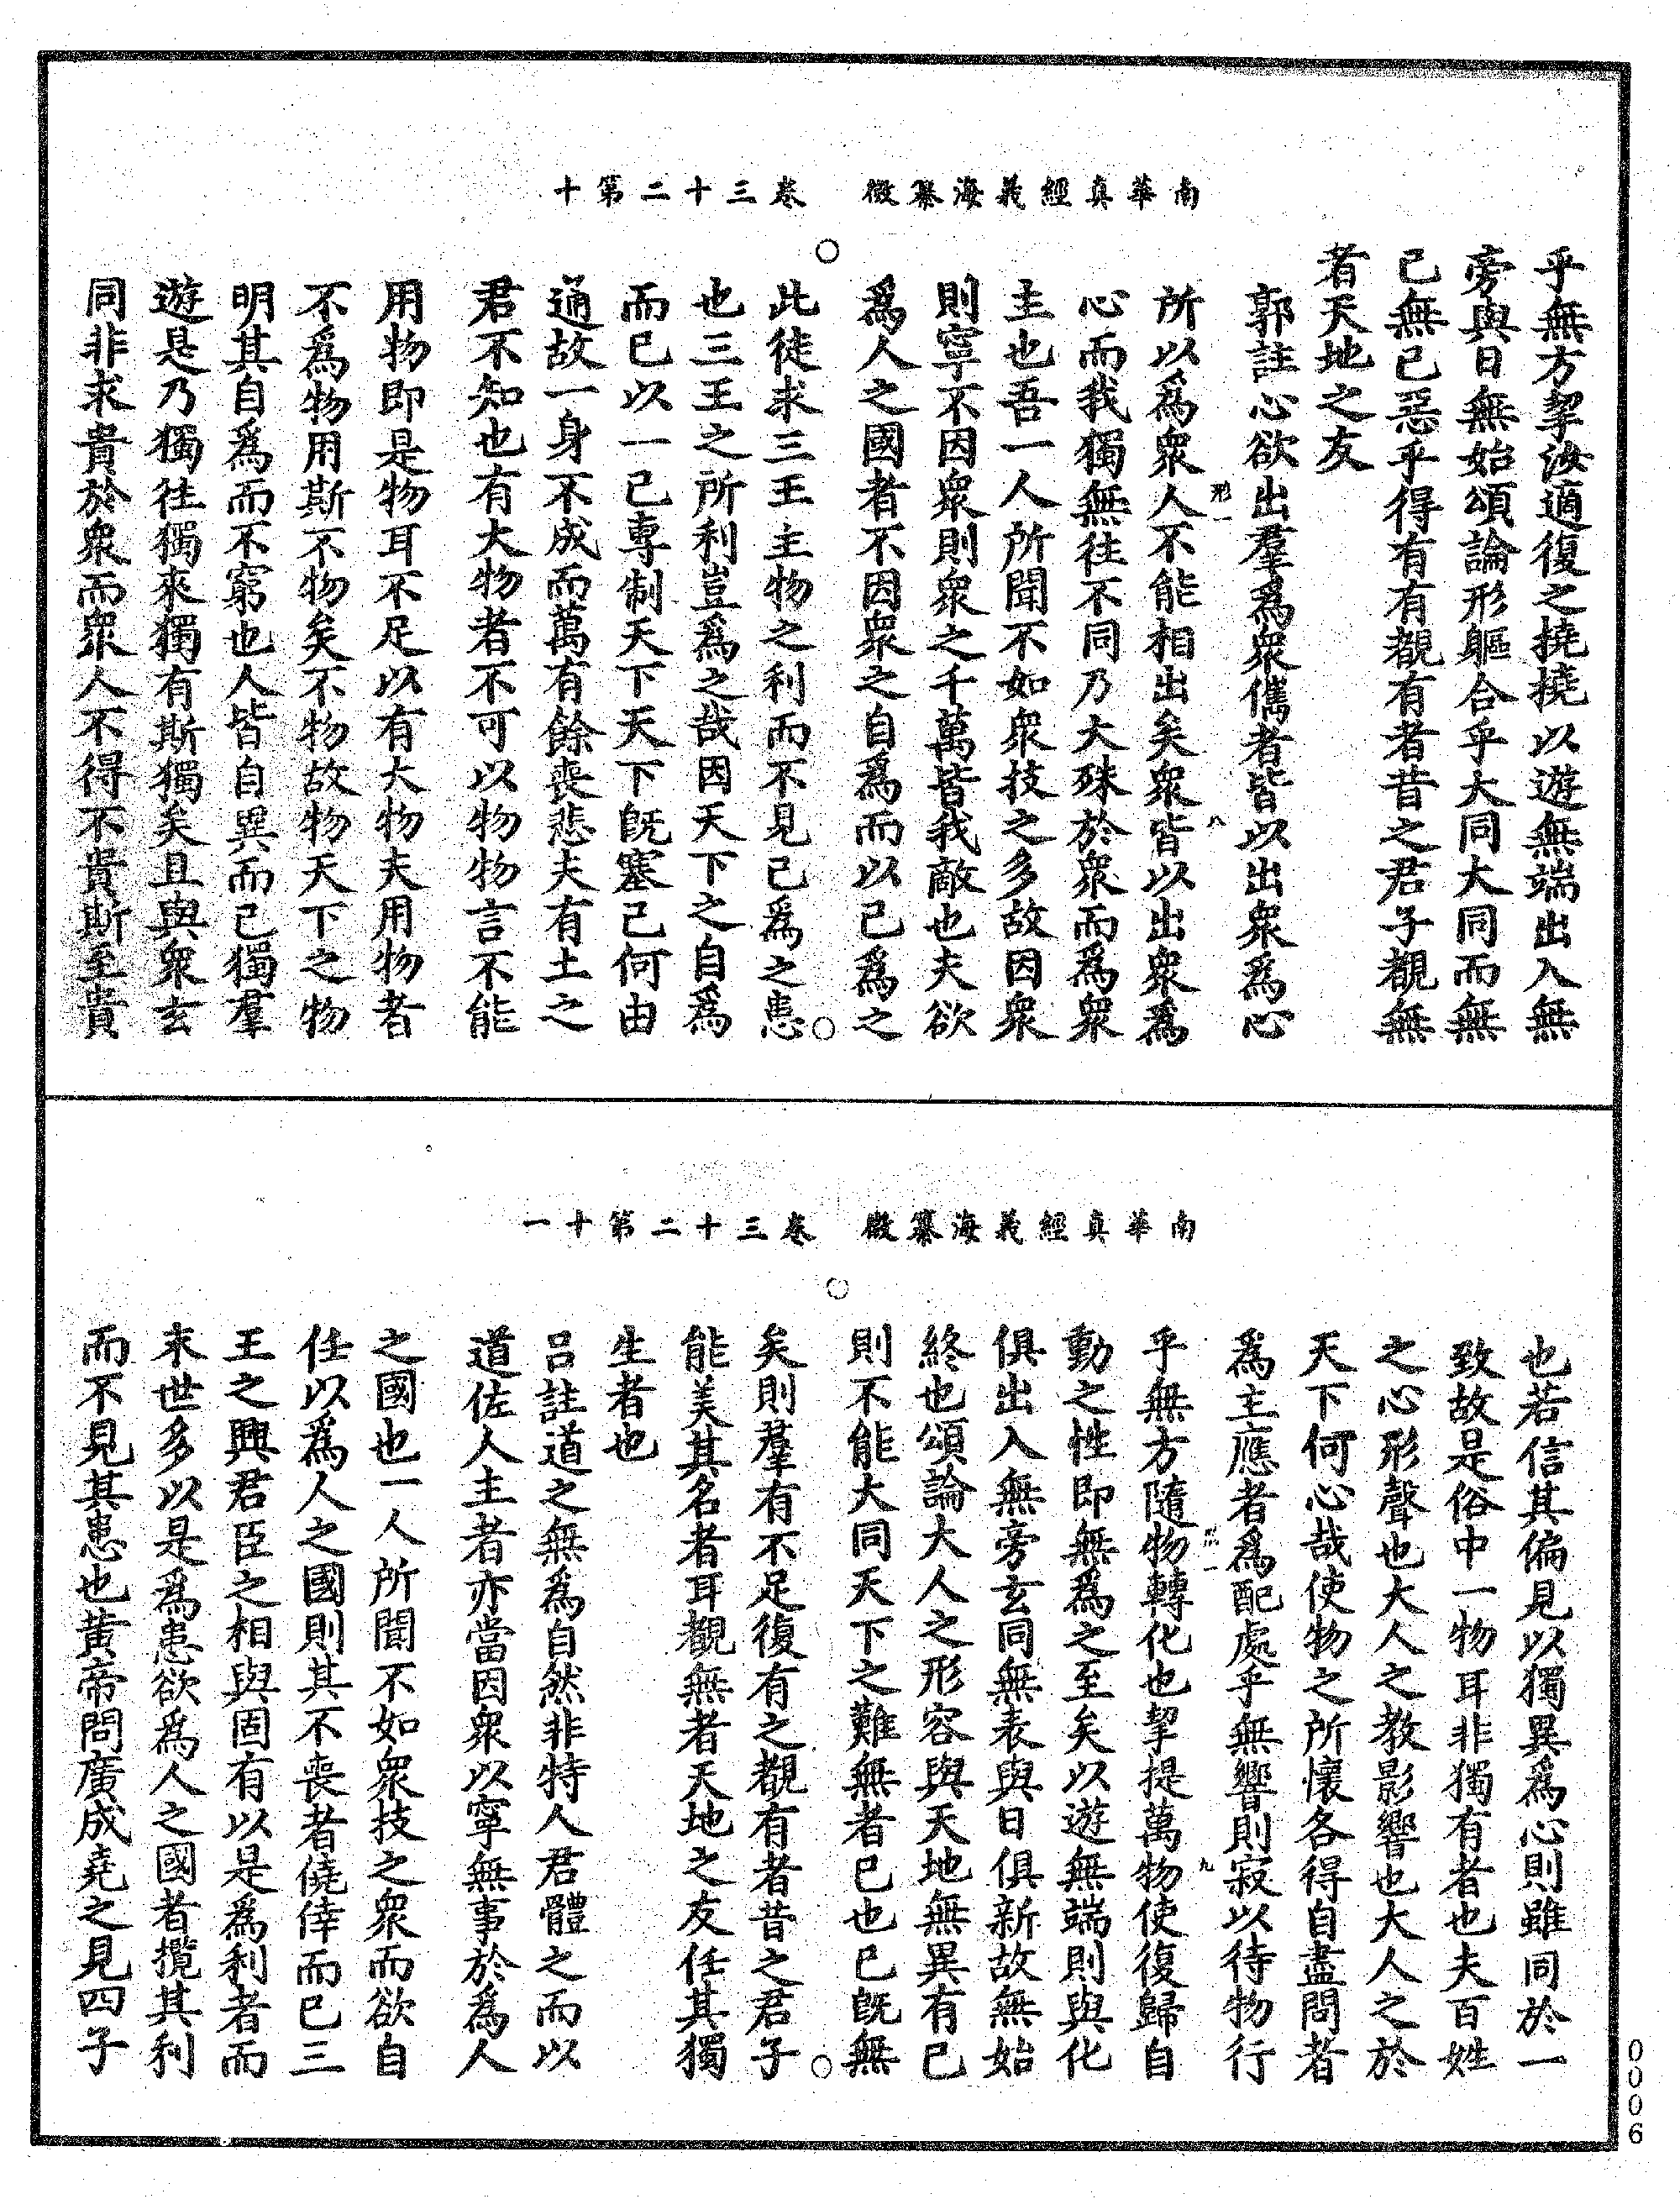 南華真經義海纂微　卷三十二第十
乎無方挈汝適復之撓撓以遊無端出入無
旁與日無始頌論形軀合乎大同大同而無
己無己惡乎得有有覩有者昔之君子覩無
者天地之友
郭註心欲出羣爲衆儁者皆以出衆爲心
所以爲衆人不能相出矣衆皆以出衆爲
形一
八
心而我獨無往不同乃大殊於衆而爲衆
主也吾一人所聞不如衆技之多故因衆
則寧不因衆則衆之千萬皆我敵也夫欲
爲人之國者不因衆之自爲而以己爲之
此徒求三王主物之利而不見己爲之患
也三王之所利豈爲之哉因天下之自爲
而已以一己專制天下天下旣塞己何由
通故一身不成而萬有餘喪悲夫有土之
君不知也有大物者不可以物物言不能
用物即是物耳不足以有大物夫用物者
不爲物用斯不物矣不物故物天下之物
明其自爲而不窮也人皆自異而己獨羣
遊是乃獨往獨來獨有斯獨矣且與衆玄
同非求貴於衆而衆人不得不貴斯至貴
南華真經義海纂微　卷三十二第十一
也若信其偏見以獨異爲心則雖同於一
致故是俗中一物耳非獨有者也夫百姓
之心形聲也大人之教影響也大人之於
天下何心哉使物之所懷各得自盡問者
爲主應者爲配處乎無響則寂以待物行
乎無方隨物轉化也挈提萬物使復歸自
一
九
動之性即無爲之至矣以遊無端則與化
俱出入無旁玄同無表與日俱新故無始
終也頌論大人之形容與天地無異有己
則不能大同天下之難無者已也已旣無
矣則羣有不足復有之覩有者昔之君子
能美其名者耳覩無者天地之友任其獨
生者也
呂註道之無爲自然非特人君體之而以
道佐人主者亦當因衆以寧無事於爲人
之國也一人所聞不如衆技之衆而欲自
任以爲人之國則其不喪者僥倖而已三
王之興君臣之相與固有以是爲利者而
末世多以是爲患欲爲人之國者攬其利
而不見其患也黃帝問廣成堯之見四子
0006